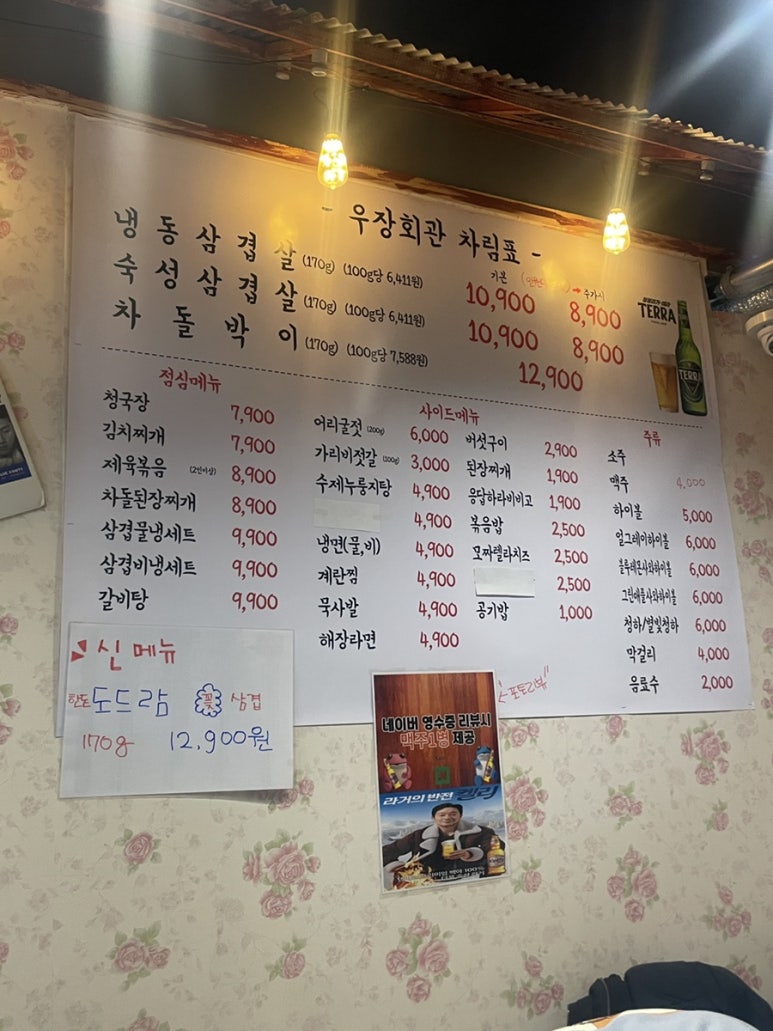 - 우장회관 차림표 -
기본
→ 추가시
냉동삼겹살 (170g) (100g당 6,411원) 10,900 8,900
숙성삼겹살 (170g) (100g당 6,411원) 10,900 8,900
차돌박이 (170g) (100g당 7,588원) 12,900
TERRA
TERRA
점심메뉴
청국장 7,900
김치찌개 7,900
제육볶음 (2인이상) 8,900
차돌된장찌개 8,900
삼겹물냉세트 9,900
삼겹비냉세트 9,900
갈비탕 9,900
사이드메뉴
어리굴젓 (200g) 6,000
가리비젓갈 (100g) 3,000
수제누룽지탕 4,900
4,900
냉면(물,비) 4,900
계란찜 4,900
묵사발 4,900
해장라면 4,900
버섯구이 2,900
된장찌개 1,900
응답하라비비고 1,900
볶음밥 2,500
모짜렐라치즈 2,500
2,500
공기밥 1,000
주류
소주
맥주 4,000
하이볼 5,000
얼그레이하이볼 6,000
블루레몬사와하이볼 6,000
그린애플사와하이볼 6,000
청하/별빛청하 6,000
막걸리 4,000
음료수 2,000
신메뉴
한돈 도드람 꽃 삼겹
170g 12,900원
네이버 영수증 리뷰시
맥주1병 제공
"포토리뷰"
라거의 반전 켈리